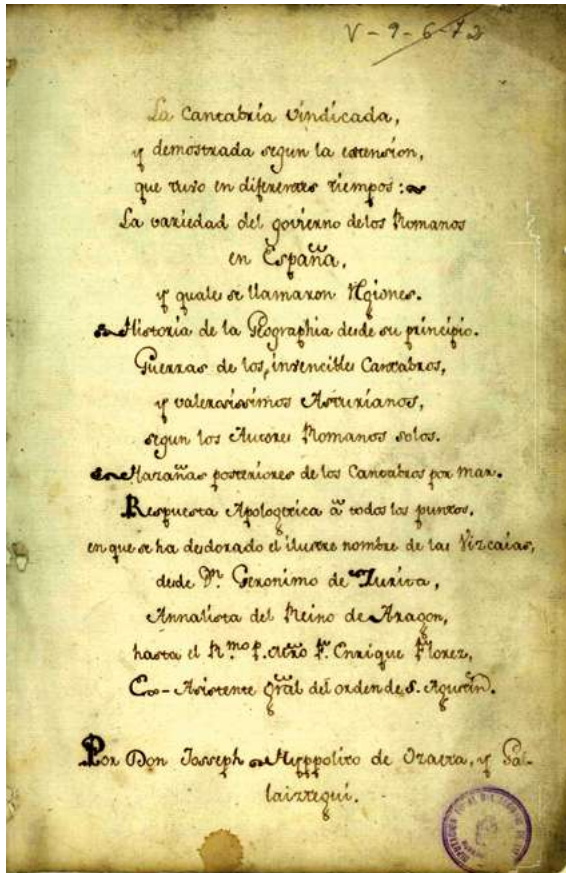 V-9-6-12
La Cantabria vindicada,
y demostrada segun la estension,
que tuvo en diferentes tiempos:
La variedad del govierno delos Romanos
en España,
y quales se llamaron Rgiones.
Historia de la Geographia desde su principio.
Guerras de los invencibles Cantabros,
y valerosissimos Asturianos,
segun los Autores Romanos solos.
Hazañas posteriores de los Cantabros por mar.
Respuesta Apologetica â todos los puntos,
en que se ha desdorado el ilustre nombre de las Vizcaias,
desde Dn. Geronimo de Zurita,
Annalista del Reino de Aragon,
hasta el R.mo P. Mtro Fr. Enrique Florez,
Ex-Asistente gral del orden de S. Agustin.
Por Don Joseph Hyppolito de Ozaeta, y Gal-
laiztegui.